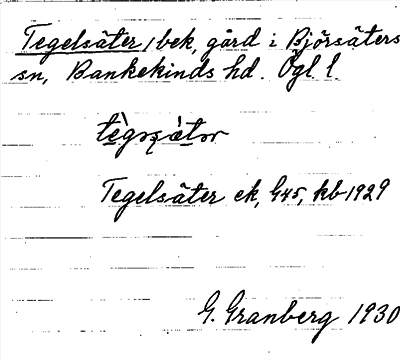 Tegelsäter, bek, gård i Björsäters
sn, Bankekinds hd. Ögl l.
Tegelsäter ek, G45, kb 1929
G. Granberg 1930